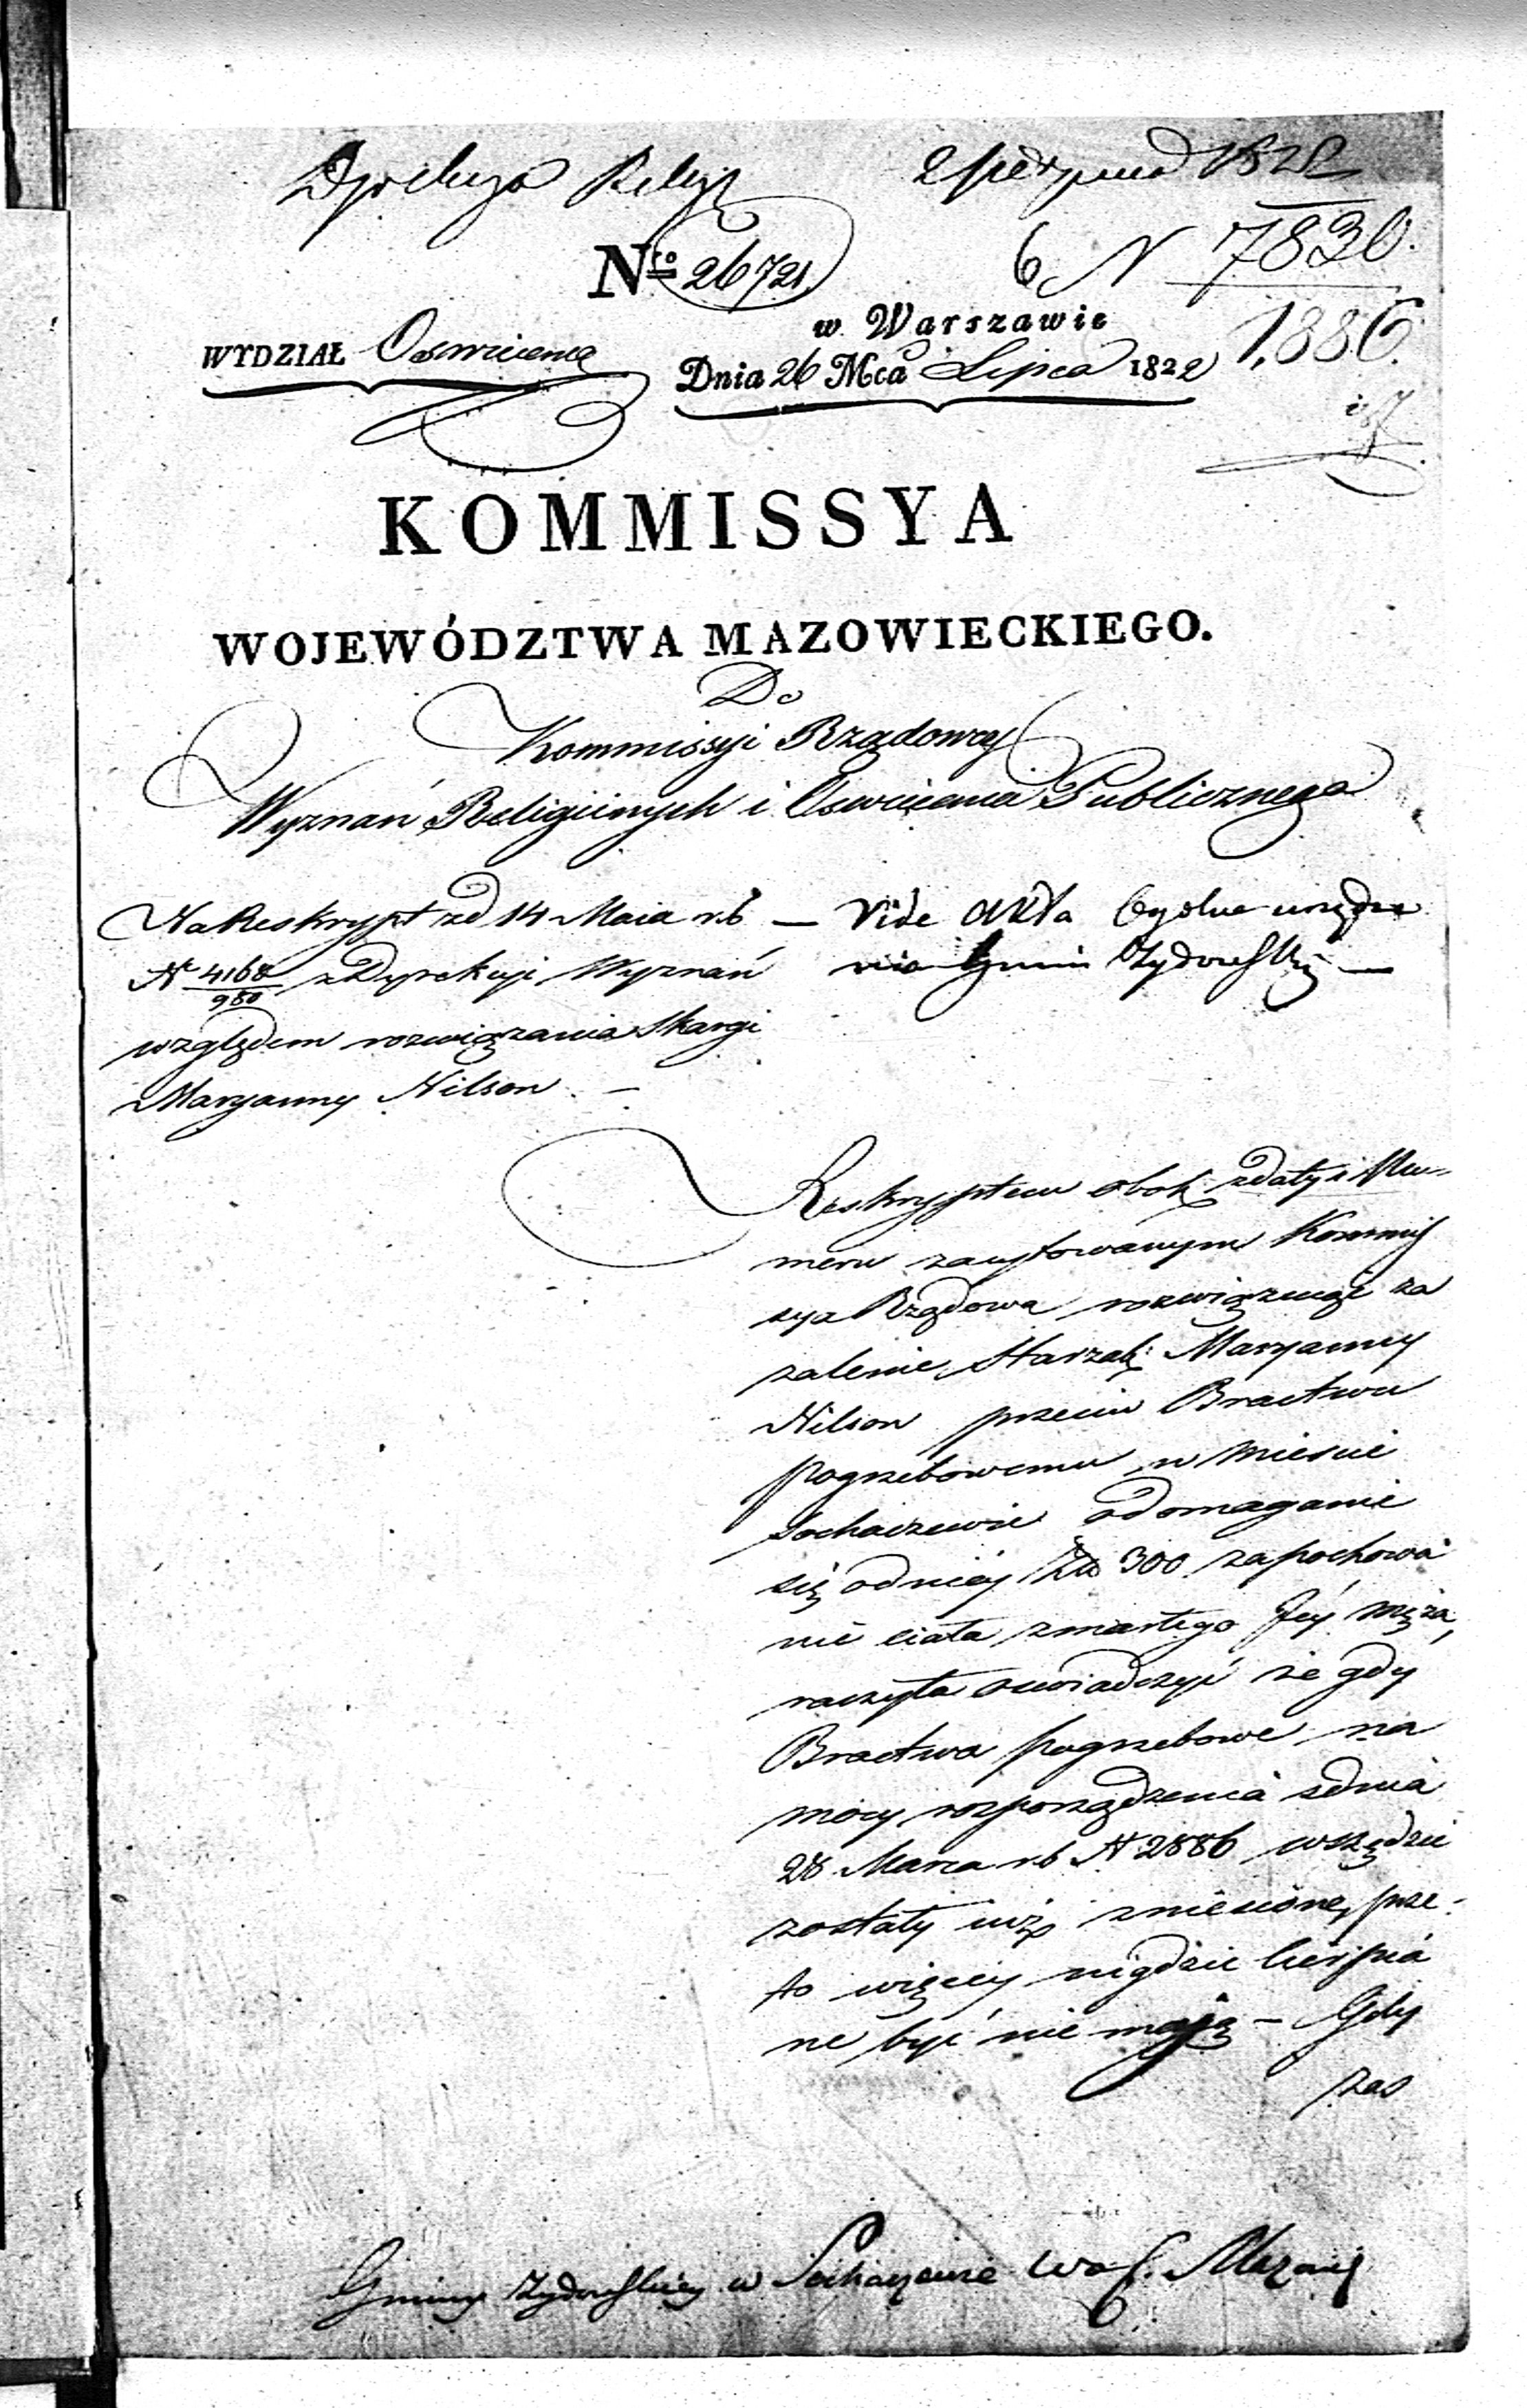 Dyrekcya Religij
2 Sierpnia 1822
Nro 26721.
6 N 7830.
1,886.
w Warszawie
WYDZIAŁ Oswiecenia
Dnia 26 Mca Lipca 1822
KOMMISSYA
WOJEWÓDZTWA MAZOWIECKIEGO.
Do
Kommissyi Rządowey
Wyznań Religiinych i Oswiecenia Publicznego
Na Reskrypt zd 14 Maia r.b
N 4168/980 z Dyrekcyi Wyznań
względem rozwiązania Skargi
Maryanny Nilson. —
— Vide Akta Ogolne urządze
nia Gmin Zydowskich —
Reskryptem obok z daty i Nu-
meru zacytowanym Kommis
sya Rządowa rozwiązuiąc za
zalenie Starzak: Maryanny
Nilson przeciw Bractwu
pogrzebowemu w miescie
Sochaczewie o domaganie
się od niey Zło 300 za pochowa
nie ciała zmarłego Jey męża,
raczyła oswiadczyć że gdy
Bractwa pogrzebowe na
mocy rozporządzenia z dnia
28 Marca r.b N 2886 wszędzie
zostały iuż zniesione, prze-
to więcey nigdzie cierpia
ne być nie mają — Gdy
zas
Gminy Zydowskiey w Sochaczewie Woj. Mazowi